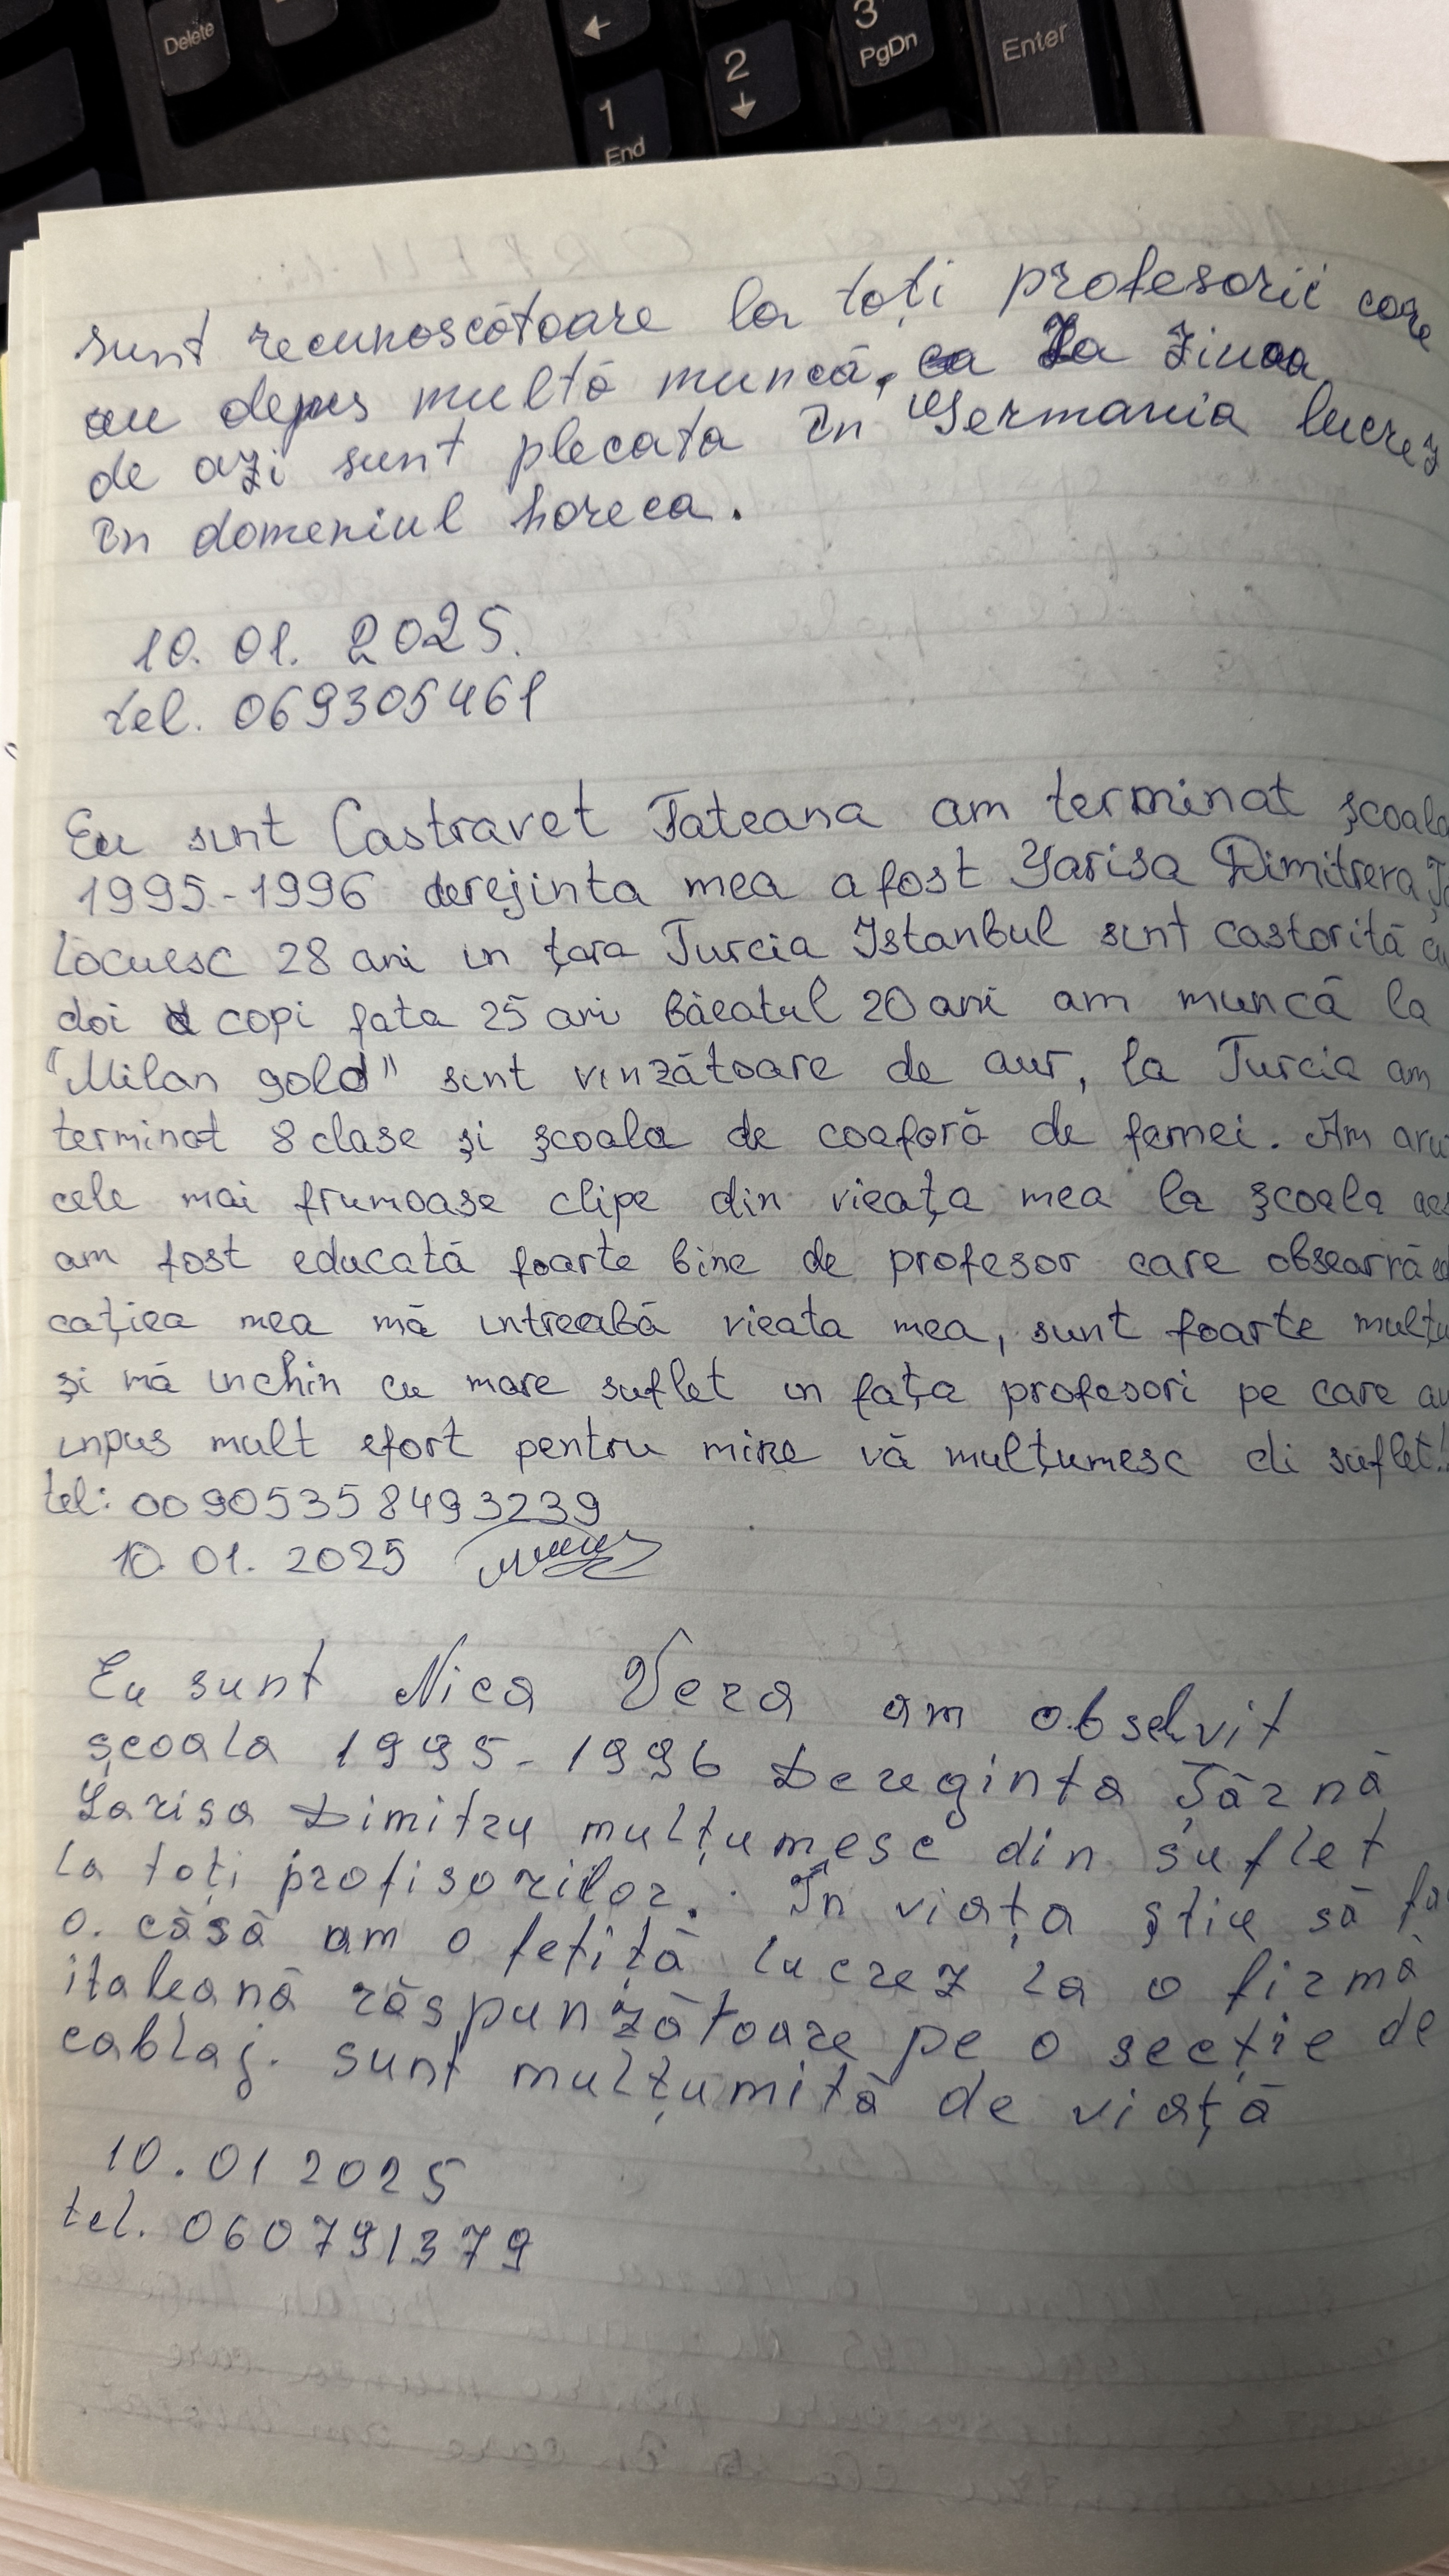 Delete
1
End
2
3
PgDn
Enter
sunt recunoscătoare la toți profesorii care
au depus multă muncă, La ziua
de azi sunt plecata în Germania lucrez
în domeniul horeca.
10. 01. 2025.
tel. 069305461
Eu sunt Castravet Tateana am terminat școala
1995-1996 derejinta mea a fost Larisa Dimitrevа
Locuesc 28 ani in țara Turcia Istanbul sint castorită
doi copi fata 25 ani băeatul 20 ani am muncă la
"Milan gold" sint vinzătoare de aur, la Turcia am
terminat 8 clase și școala de coaforă de femei. Am
cele mai frumoase clipe din vieața mea la școala
am fost educată foarte bine de profesor care obsearvă
cațiea mea mă intreabă vieata mea, sunt foarte mulțu
și mă inchin cu mare suflet in fața profesori pe care au
inpus mult efort pentru mine vă mulțumesc di suflet!
tel: 00905358493239
10. 01. 2025
Eu sunt Nica Vera am obselvit
școala 1995-1996 Dereginta Țărnă
Larisa Dimitru mulțumesc din suflet
la toți profisorilor. În viața știu să fa
o. căsă am o fetiță lucrez la o firmă
italeană răspunzătoare pe o secție de
cablaj. sunt mulțumită de viață
10.01 2025
tel. 060791379